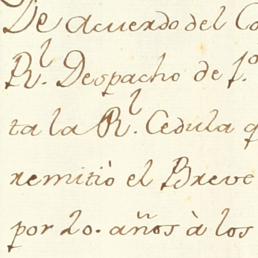 De acuerdo del Co
Rl. Despacho de 1.º
ta la Rl. Cedula q
remitiò el Breve
por 20. años à los